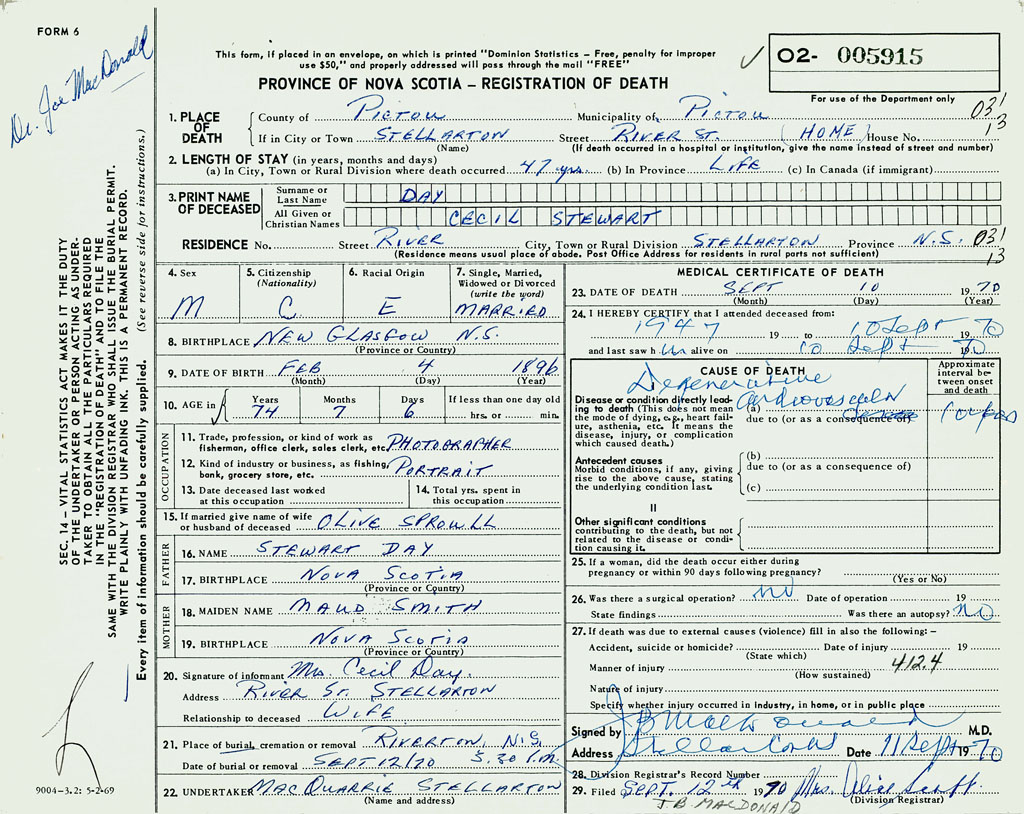 FORM 6
Dr. Joe MacDonald
This form, if placed in an envelope, on which is printed "Dominion Statistics – Free, penalty for improper
use $50," and properly addressed will pass through the mail "FREE"
✓ 02- 005915
PROVINCE OF NOVA SCOTIA – REGISTRATION OF DEATH
For use of the Department only
1. PLACE OF DEATH
County of PICTOU Municipality of PICTOU 03'
If in City or Town STELLARTON Street RIVER ST. (HOME) House No. 13
(Name) (If death occurred in a hospital or institution, give the name instead of street and number)
2. LENGTH OF STAY (in years, months and days)
(a) In City, Town or Rural Division where death occurred 47 yrs. (b) In Province LIFE (c) In Canada (if immigrant)
3. PRINT NAME OF DECEASED
Surname or Last Name DAY
All Given or Christian Names CECIL STEWART
RESIDENCE No. Street RIVER City, Town or Rural Division STELLARTON Province N.S. 03'
(Residence means usual place of abode. Post Office Address for residents in rural parts not sufficient) 13
4. Sex M
5. Citizenship (Nationality) C
6. Racial Origin E
7. Single, Married, Widowed or Divorced (write the word) MARRIED
8. BIRTHPLACE NEW GLASGOW N.S.
(Province or Country)
9. DATE OF BIRTH FEB 4 1896
(Month) (Day) (Year)
10. AGE in Years 74 Months 7 Days 6 If less than one day old
hrs. or min.
OCCUPATION
11. Trade, profession, or kind of work as
fisherman, office clerk, sales clerk, etc. PHOTOGRAPHER
12. Kind of industry or business, as fishing,
bank, grocery store, etc. PORTRAIT
13. Date deceased last worked
at this occupation
14. Total yrs. spent in
this occupation
15. If married give name of wife
or husband of deceased OLIVE SPROULL
FATHER
16. NAME STEWART DAY
17. BIRTHPLACE NOVA SCOTIA
(Province or Country)
MOTHER
18. MAIDEN NAME MAUD SMITH
19. BIRTHPLACE NOVA SCOTIA
(Province or Country)
20. Signature of informant Mrs. Cecil Day.
Address RIVER ST. STELLARTON
Relationship to deceased WIFE
21. Place of burial, cremation or removal RIVERTON, N.S.
Date of burial or removal SEPT 12/70 3.30 P.M.
22. UNDERTAKER MACQUARRIE STELLARTON
(Name and address)
MEDICAL CERTIFICATE OF DEATH
23. DATE OF DEATH SEPT 10 1970
(Month) (Day) (Year)
24. I HEREBY CERTIFY that I attended deceased from:
1947 19 to 10 Sept 1970
and last saw him alive on 10 Sept 1970
CAUSE OF DEATH
Approximate interval between onset and death
Degenerative
Disease or condition directly leading to death (This does not mean the mode of dying, e.g., heart failure, asthenia, etc. It means the disease, injury, or complication which caused death.)
(a) Cardiovascular
due to (or as a consequence of)
Antecedent causes
Morbid conditions, if any, giving rise to the above cause, stating the underlying condition last.
(b)
due to (or as a consequence of)
(c)
II
Other significant conditions
contributing to the death, but not related to the disease or condition causing it.
25. If a woman, did the death occur either during
pregnancy or within 90 days following pregnancy?
(Yes or No)
26. Was there a surgical operation? NO Date of operation 19
State findings Was there an autopsy? NO
27. If death was due to external causes (violence) fill in also the following: –
Accident, suicide or homicide? Date of injury 19
(State which)
Manner of injury 412.4
(How sustained)
Nature of injury
Specify whether injury occurred in industry, in home, or in public place
Signed by J B MacDonald M.D.
Address Stellarton Date 11 Sept 1970
28. Division Registrar's Record Number
29. Filed SEPT. 12th 1970 Mrs. Alice Scott
J.B. MACDONALD (Division Registrar)
SEC. 14 – VITAL STATISTICS ACT MAKES IT THE DUTY
OF THE UNDERTAKER OR PERSON ACTING AS UNDER-
TAKER TO OBTAIN ALL THE PARTICULARS REQUIRED
IN THE "REGISTRATION OF DEATH" AND TO FILE THE
SAME WITH THE DIVISION REGISTRAR WHO SHALL ISSUE THE BURIAL PERMIT.
WRITE PLAINLY WITH UNFADING INK. THIS IS A PERMANENT RECORD.
Every item of information should be carefully supplied. (See reverse side for instructions.)
9004-3.2: 5-2-69